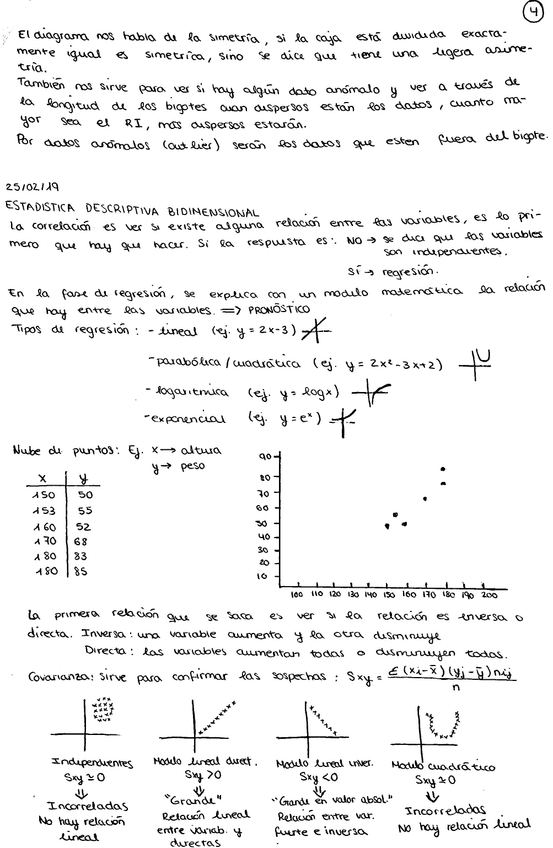 4
El diagrama nos habla de la simetría, si la caja está dividida exacta-
mente igual es simetrica, sino se dice que tiene una ligera asime-
tría.
También nos sirve para ver si hay algún dato anómalo y ver a través de
la longitud de los bigotes cuan dispersos están los datos, cuanto ma-
yor sea el RI, más dispersos estarán.
Por datos anómalos (outlier) serán los datos que esten fuera del bigote.
25/02/19
ESTADISTICA DESCRIPTIVA BIDIMENSIONAL
La correlación es ver si existe alguna relación entre las variables, es lo pri-
mero que hay que hacer. Si la respuesta es: NO → se dice que las variables
son independientes.
Sí → regresión.
En la fase de regresión, se explica con un modulo matemática la relación
que hay entre las variables. => PRONÓSTICO
Tipos de regresión: - lineal (ej. y = 2x-3)
- parabólica / cuadrática (ej. y = 2x² - 3x + 2)
- logaritmica (ej. y = log x)
- exponencial (ej. y = eˣ)
Nube de puntos: Ej. x → altura
y → peso
x y
150 50
153 55
160 52
170 68
180 83
180 85
90
80
70
60
50
40
30
20
10
100 110 120 130 140 150 160 170 180 190 200
La primera relación que se saca es ver si la relación es inversa o
directa. Inversa: una variable aumenta y la otra disminuye
Directa: las variables aumentan todas o disminuyen todas.
Covarianza: sirve para confirmar las sospechas: Sxy = Σ (xi - x̄) (yj - ȳ) nij / n
Independientes Modulo lineal direct. Modulo lineal inver. Modulo cuadrático
Sxy ≃ 0 Sxy > 0 Sxy < 0 Sxy ≃ 0
⇓ ⇓ ⇓ ⇓
Incorreladas "Grande" "Grande en valor absol." Incorreladas
No hay relación Relación lineal Relación entre var. No hay relación lineal
lineal entre variab. y fuerte e inversa
directas